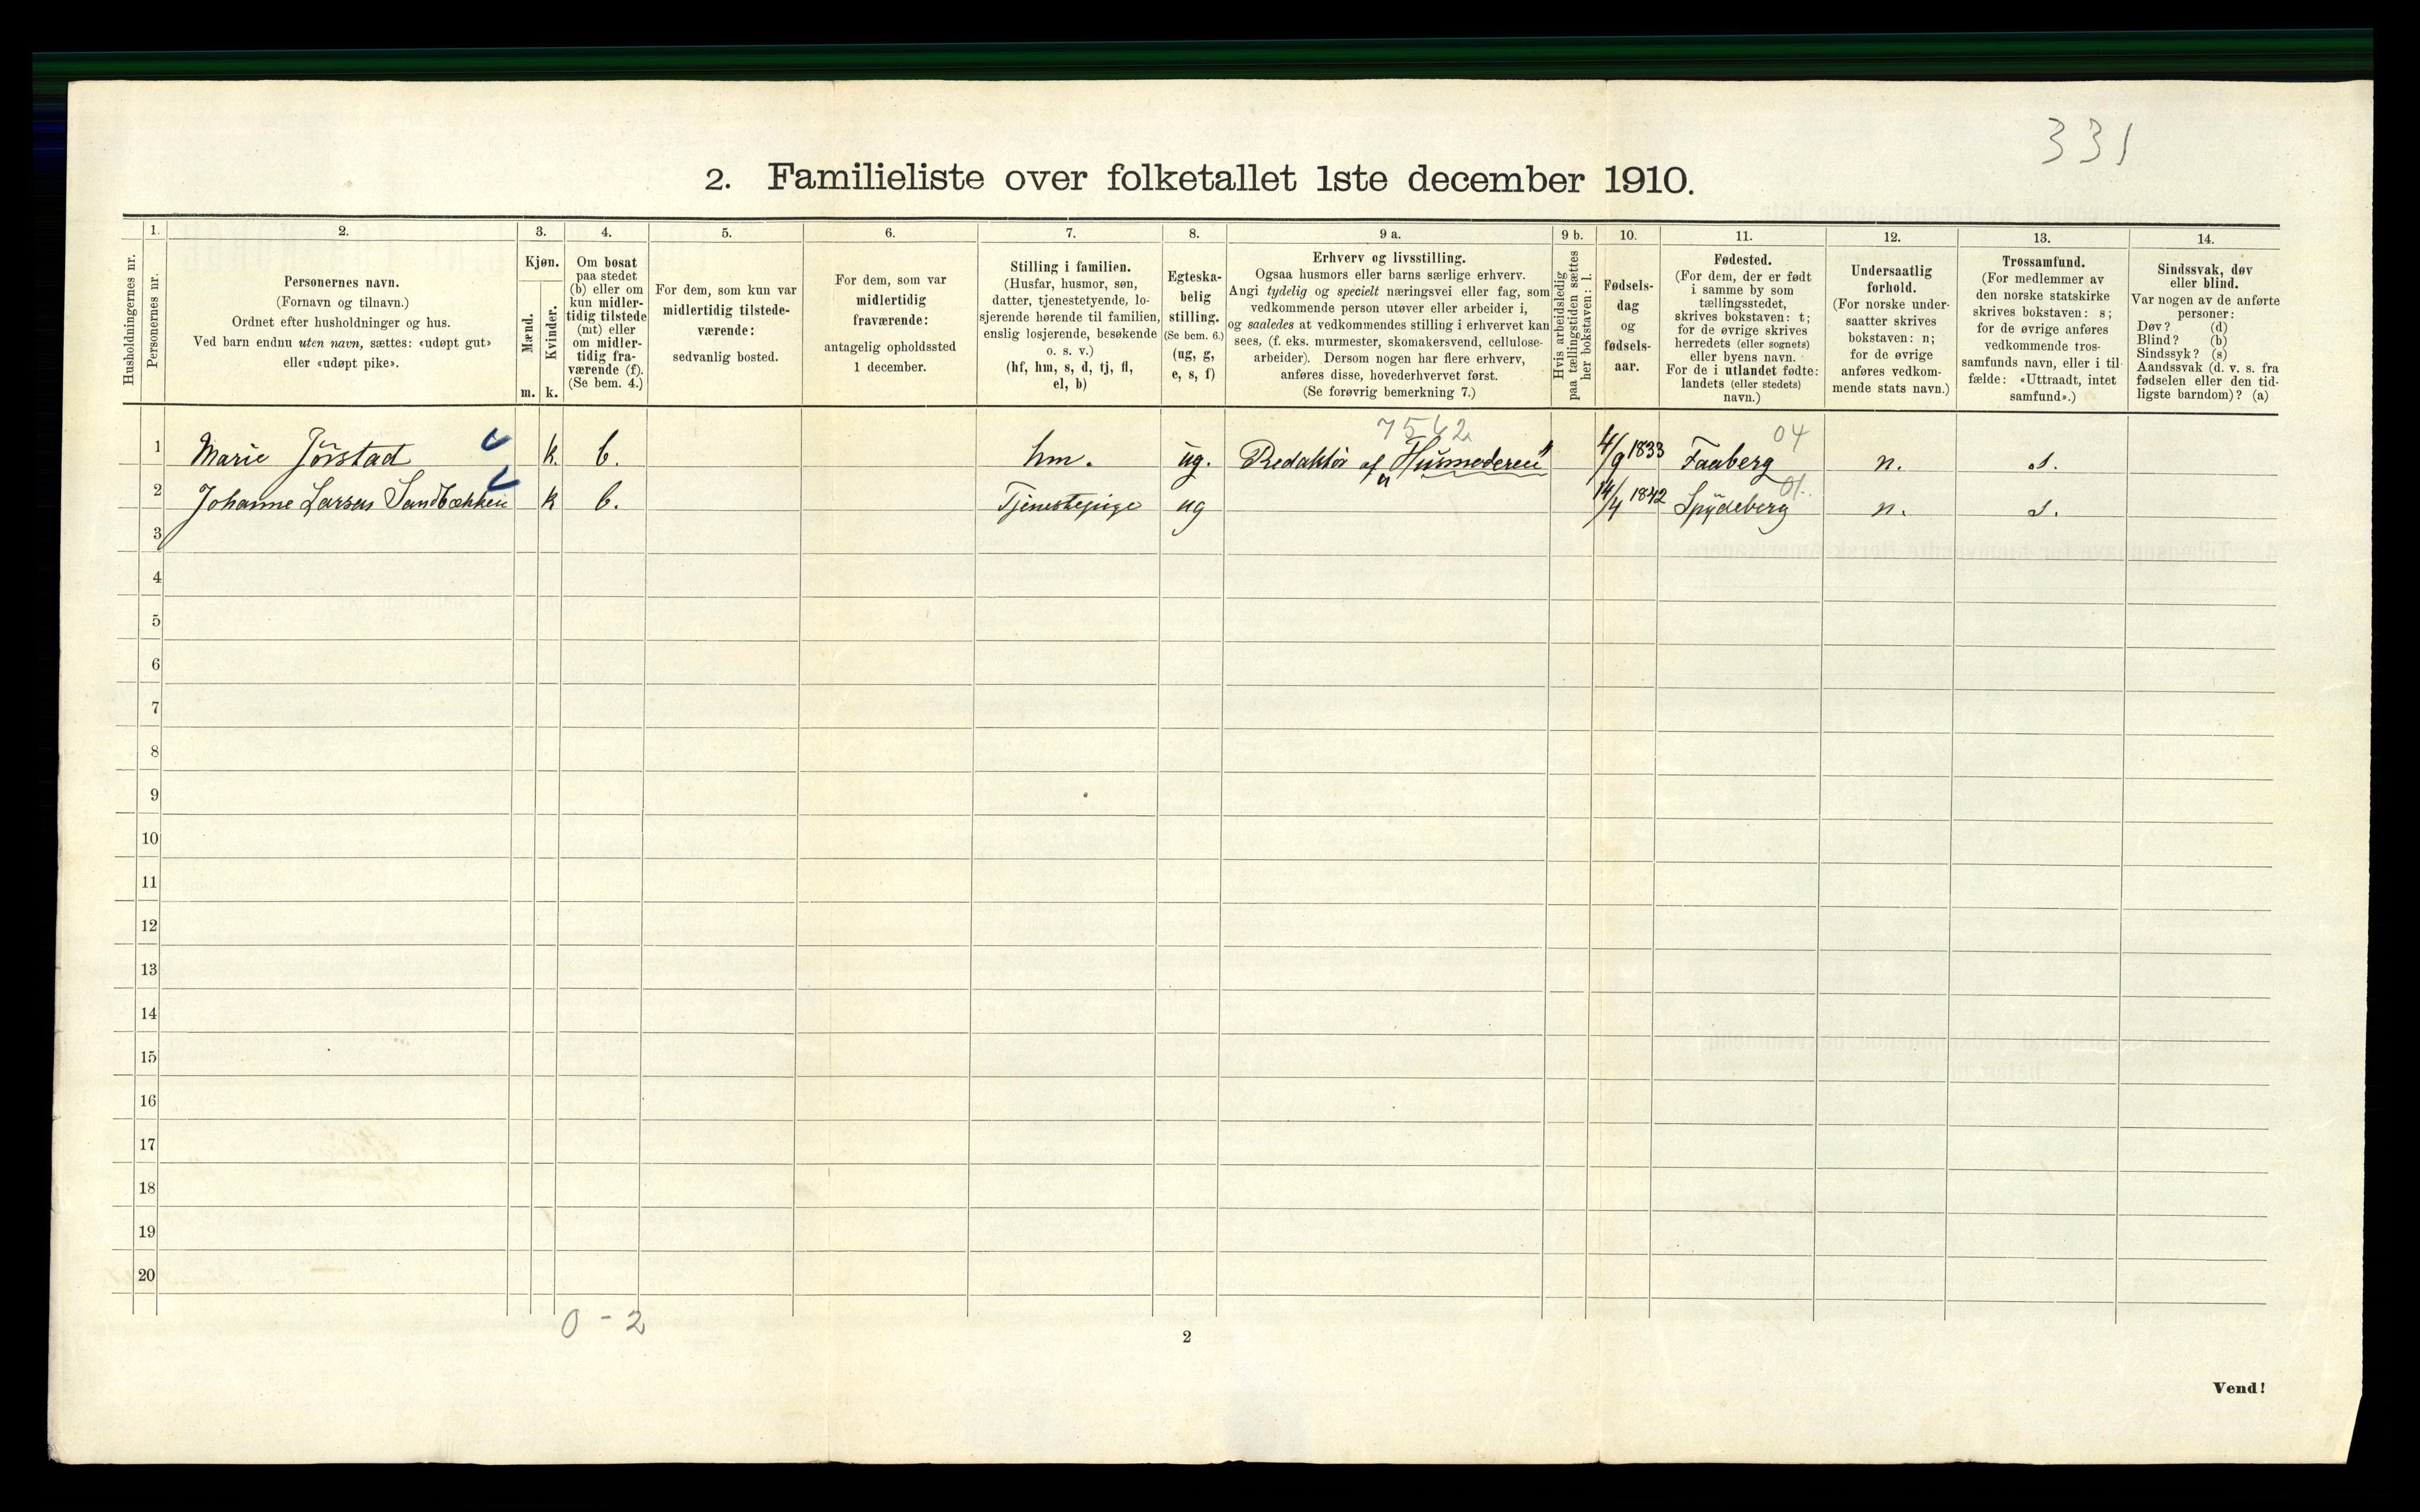 331
2. Familieliste over folketallet 1ste december 1910.
Husholdningernes nr.
1.
Personernes nr.
2.
Personernes navn.
(Fornavn og tilnavn.)
Ordnet efter husholdninger og hus.
Ved barn endnu uten navn, sættes: «udøpt gut»
eller «udøpt pike».
3.
Kjøn.
Mænd.
m.
Kvinder.
k.
4.
Om bosat
paa stedet
(b) eller om
kun midler-
tidig tilstede
(mt) eller
om midler-
tidig fra-
værende (f).
(Se bem. 4.)
5.
For dem, som kun var
midlertidig tilstede-
værende:
sedvanlig bosted.
6.
For dem, som var
midlertidig
fraværende:
antagelig opholdssted
1 december.
7.
Stilling i familien.
(Husfar, husmor, søn,
datter, tjenestetyende, lo-
sjerende hørende til familien,
enslig losjerende, besøkende
o. s. v.)
(hf, hm, s, d, tj, fl,
el, b)
8.
Egteska-
belig
stilling.
(Se bem. 6.)
(ug, g,
e, s, f)
9 a.
Erhverv og livsstilling.
Ogsaa husmors eller barns særlige erhverv.
Angi tydelig og specielt næringsvei eller fag, som
vedkommende person utøver eller arbeider i,
og saaledes at vedkommendes stilling i erhvervet kan
sees, (f. eks. murmester, skomakersvend, cellulose-
arbeider). Dersom nogen har flere erhverv,
anføres disse, hovederhvervet først.
(Se forøvrig bemerkning 7.)
9 b.
Hvis arbeidsledig
paa tællingstiden sættes
her bokstaven: l.
10.
Fødsels-
dag
og
fødsels-
aar.
11.
Fødested.
(For dem, der er født
i samme by som
tællingsstedet,
skrives bokstaven: t;
for de øvrige skrives
herredets (eller sognets)
eller byens navn.
For de i utlandet fødte:
landets (eller stedets)
navn.)
12.
Undersaatlig
forhold.
(For norske under-
saatter skrives
bokstaven: n;
for de øvrige
anføres vedkom-
mende stats navn.)
13.
Trossamfund.
(For medlemmer av
den norske statskirke
skrives bokstaven: s;
for de øvrige anføres
vedkommende tros-
samfunds navn, eller i til-
fælde: «Uttraadt, intet
samfund».)
14.
Sindssvak, døv
eller blind.
Var nogen av de anførte
personer:
Døv? (d)
Blind? (b)
Sindssyk? (s)
Aandssvak (d. v. s. fra
fødselen eller den tid-
ligste barndom)? (a)
7562 04
1 Marie Jörstad k. b. hm. ug. Redaktör af „Husmoderen" 4/9 1833 Faaberg n. s.
01.
2 Johanne Larsen Sandbækken k b. Tjenestepige ug 14/4 1842 Spydeberg n. s.
3
4
5
6
7
8
9
10
11
12
13
14
15
16
17
18
19
20
0 - 2
2
Vend!